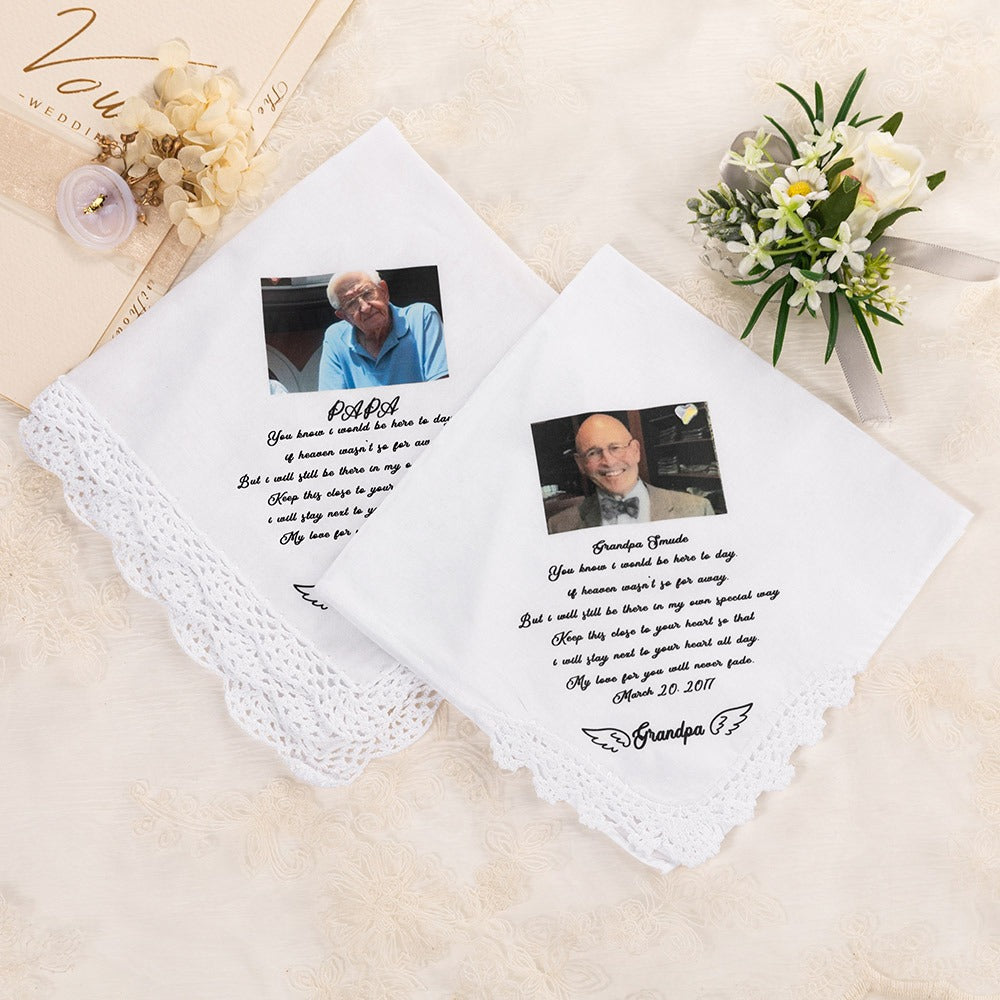 Love
-WEDDING
The
PAPA
You know i would be here to day
if heaven wasn't so far away
But i will still be there in my o
Keep this close to your
i will stay next to y
My love for
Grandpa Smude
You know i would be here to day.
if heaven wasn't so far away.
But i will still be there in my own special way
Keep this close to your heart so that
i will stay next to your heart all day.
My love for you will never fade.
March 20. 2017
Grandpa